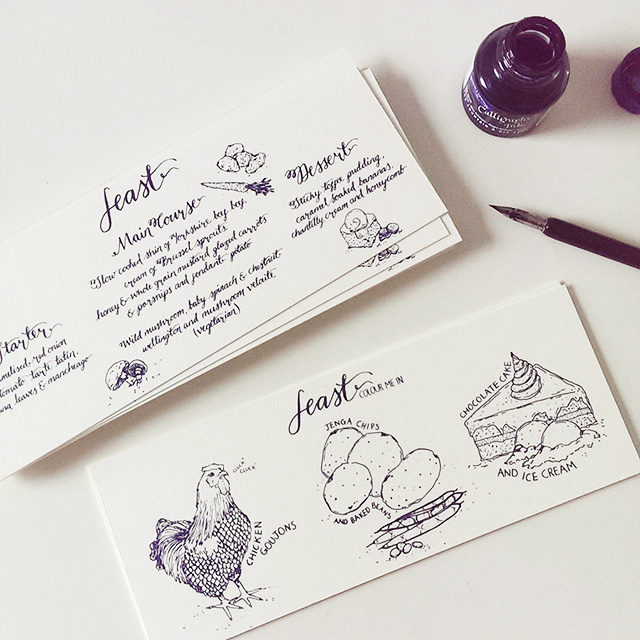 feast
Main Course
Slow cooked shin of Yorkshire beef,
cream of Brussel sprouts
honey & whole grain mustard glazed carrots
& parsnips and fondante potato
Wild mushroom, baby spinach & chestnut
wellington and mushroom veloute
(vegetarian)
Dessert
Sticky toffee pudding,
caramel soaked bananas,
chantilly cream and honeycomb
Starter
red onion
tomato tarte tatin,
leaves & manchego
Calligraphy
Ink
feast
COLOUR ME IN
CLUCK
CHICKEN
GOUJONS
JENGA CHIPS
AND BAKED BEANS
CHOCOLATE CAKE
AND ICE CREAM